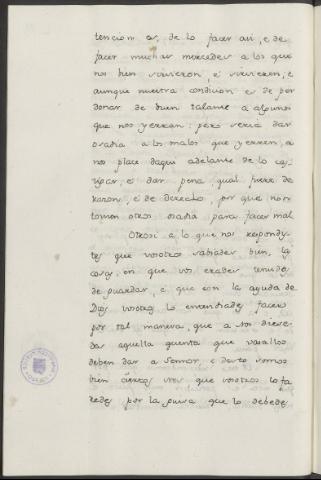 tencion es, de lo facer asi, e de
facer muchas mercedes a los que
nos bien sirvieron, e sirvieren; e
aunque nuestra condicion es de per
donar de buen talante a algunos
que nos yerran: pero seria dar
osadia a los malos que yerren, a
nos place daqui adelante de lo cas
tigar, e dar pena, qual fuere de
razon, e de derecho, por que non
tomen otros osadia para facer mal.
Otrosi a lo que nos respondis
tes que vosotros sabiades bien, las
cosas en que vos erades tenudos
de guardar, e que con la ayuda de
Dios vosotros lo entendiades facer
por tal manera, que a Dios diese
des aquella cuenta que vasallos
deben dar a Señor, e desto somos
bien ciertos nos que vosotros lo fa
redes por la guisa que lo debedes